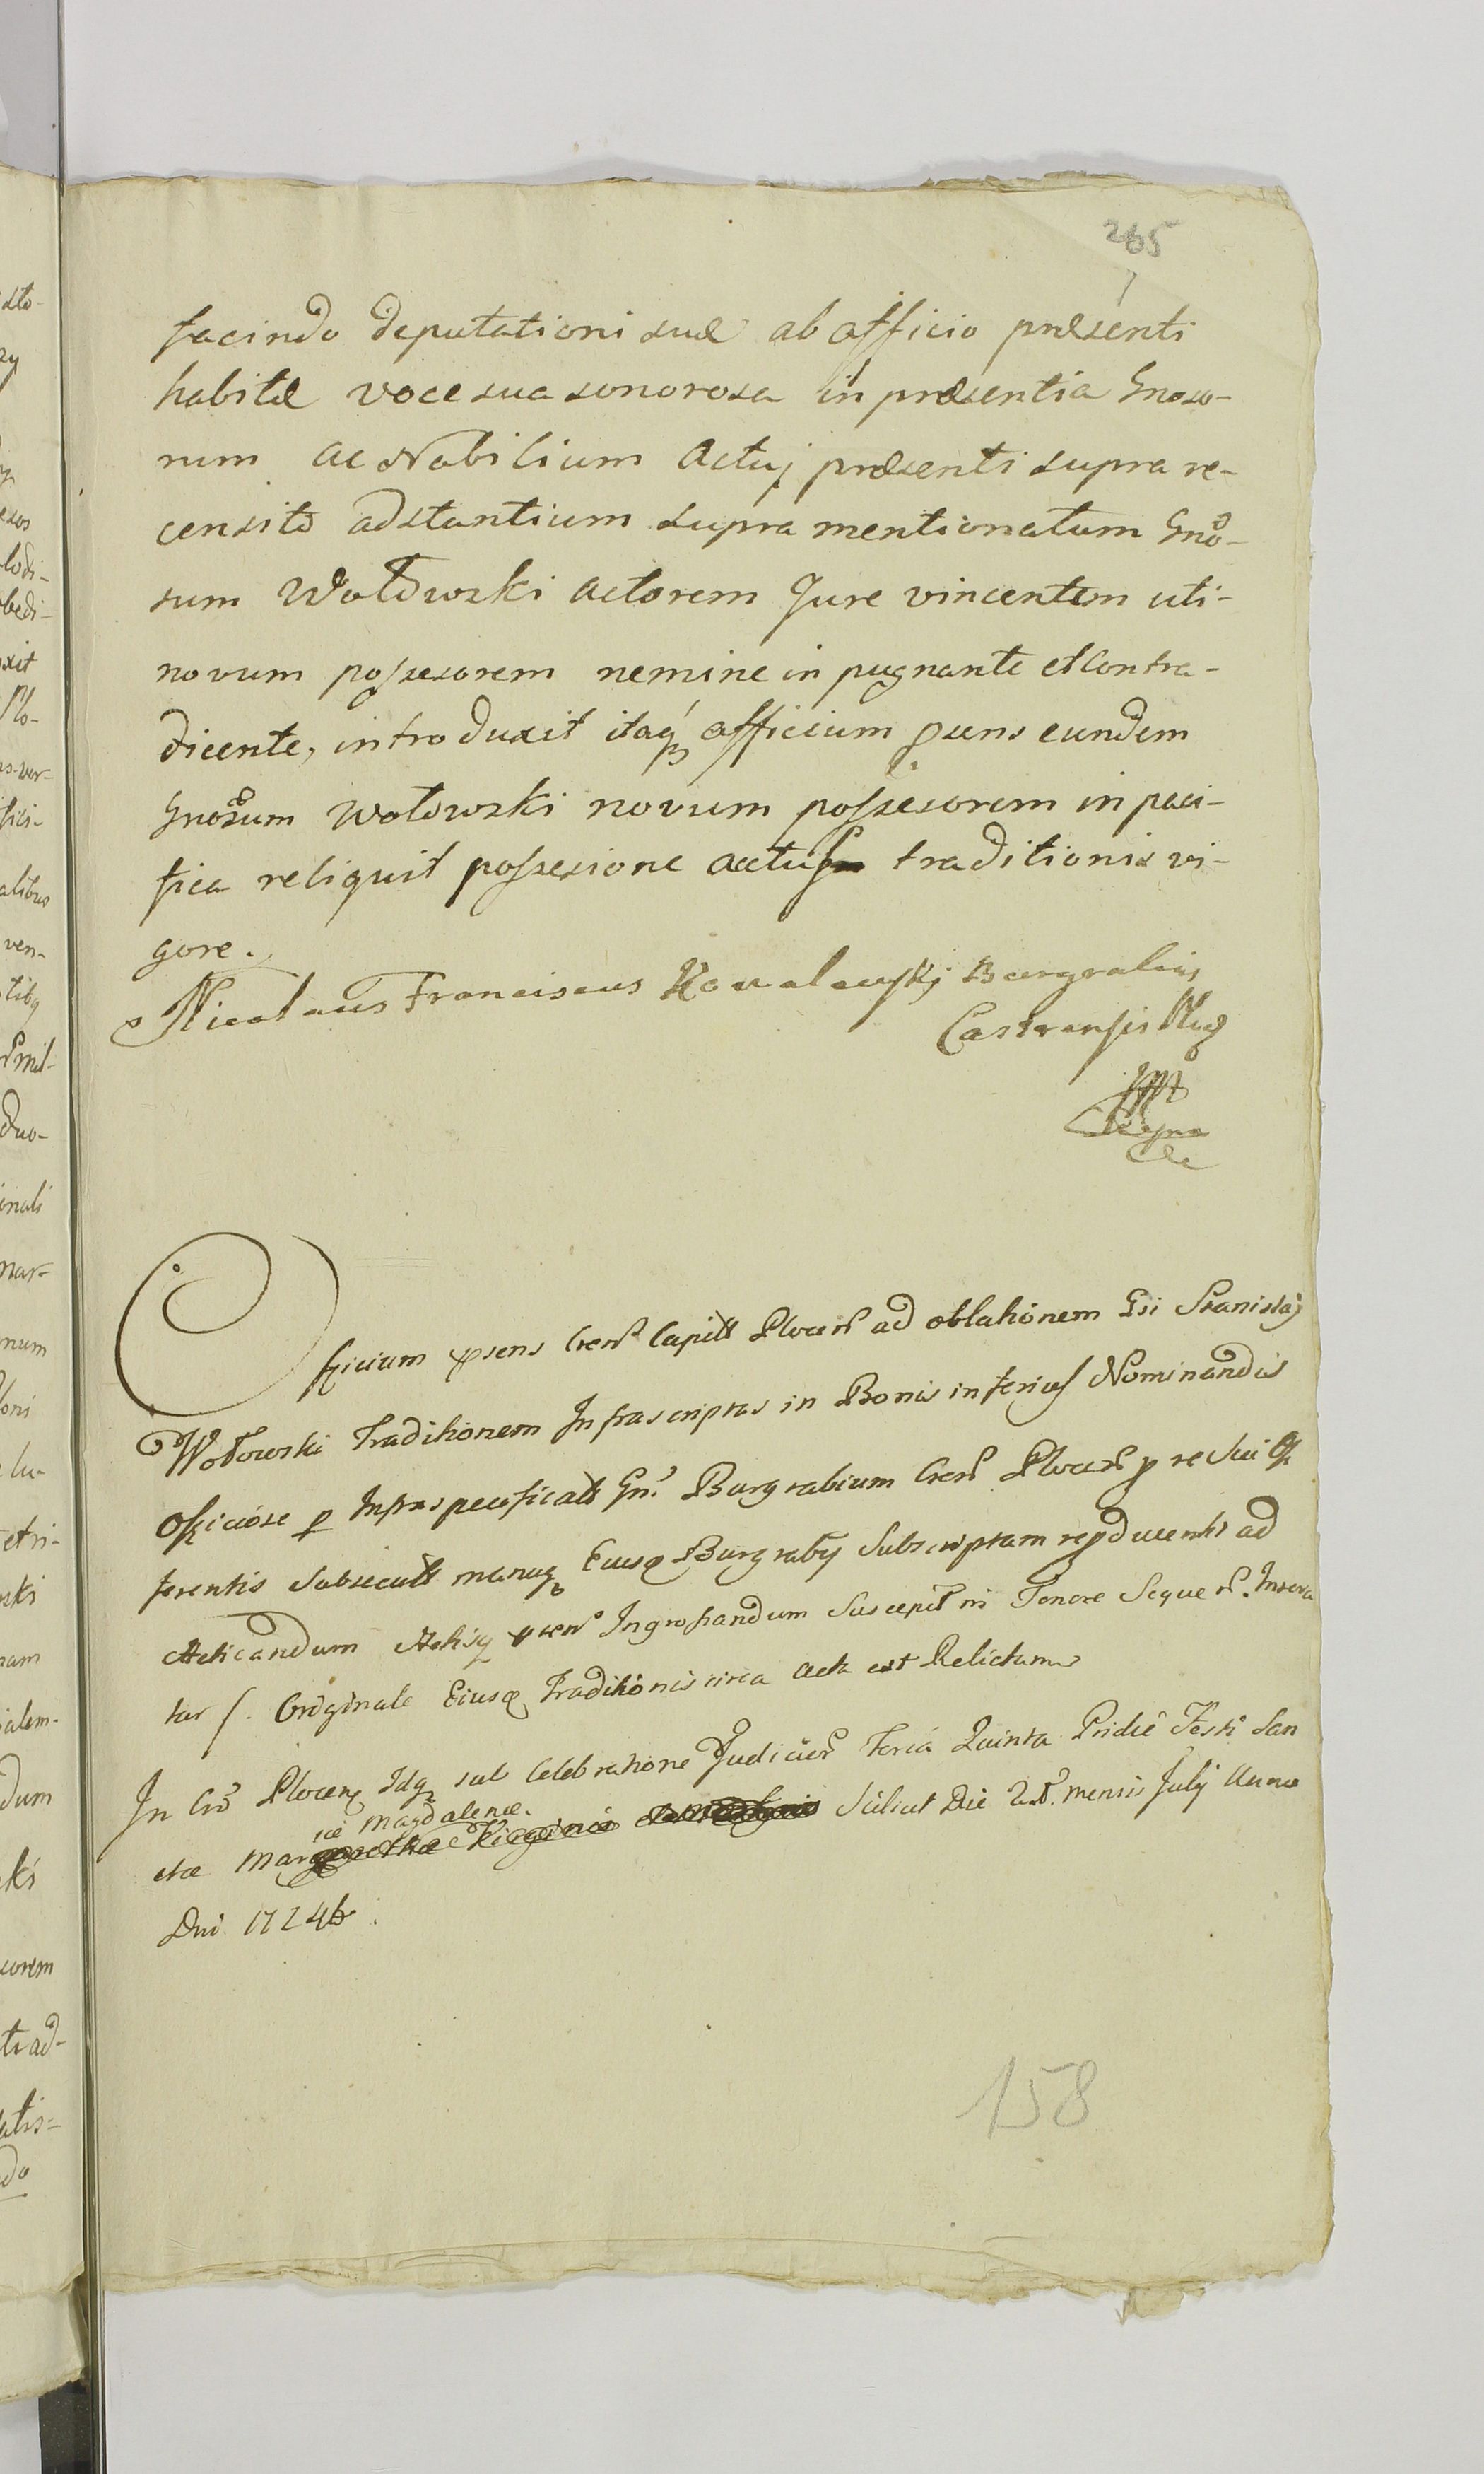 265
facindo deputationi suæ ab officio præsenti
habitæ voce sua sonorosa in præsentia Gnoso-
rum ac Nobilium Actuj præsenti supra re-
censito adstantium supra mentionatum Gno-
sum Wołowski actorem Jure vincentem uti-
novum possesorem nemine in pugnante et Contra-
dicente, introduxit itaq officium psens eundem
Gnosum Wołowski novum possesorem in paci-
fica reliquit possesione actus traditionis vi-
gore.
Nicolaus Franciscus Kowalewskj Burgrabius
Castrensis
Officium psens Cren Capitt Plocen ad oblationem Gsi Stanislaj
Wołowski Traditionem Infrascriptas in Bonis inferius Nominandis
Officiose p Infraspecificatt Gn Burgrabium Cren Plocen p re
ferentis Subsecutt manuq Eiusq Burgrabij Subscriptam repducentis ad
Acticandum Actisq psen Ingrossandum Suscepit in Tenore Sequen. Insera
tur Originale Eiusq Traditionis circa Acta est Relictum
In Cro Plocen Idq sub Celebratione Judicior Feria Quinta Pridie Festi San
ctæ Mar
iæ Magdalenæ.
Scilicet Die mensis Julij Anno
Dni 1724
158